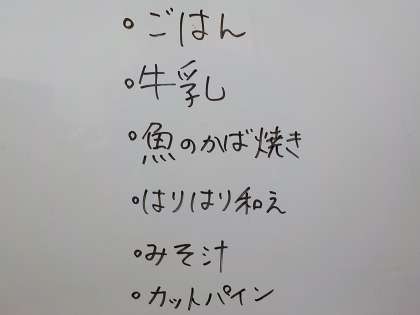 ・ごはん
・牛乳
・魚のかば焼き
・はりはり和え
・みそ汁
・カットパイン